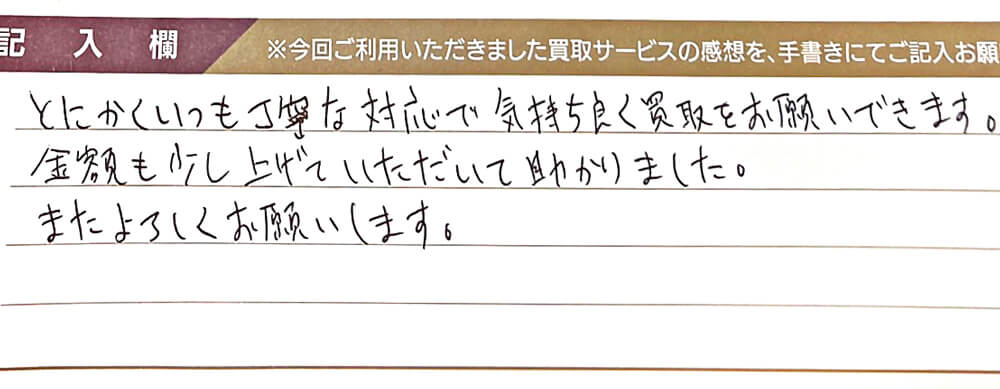 記入欄
※今回ご利用いただきました買取サービスの感想を、手書きにてご記入お願
とにかくいつも丁寧な対応で気持ち良く買取をお願いできます。
金額も少し上げていただいて助かりました。
またよろしくお願いします。